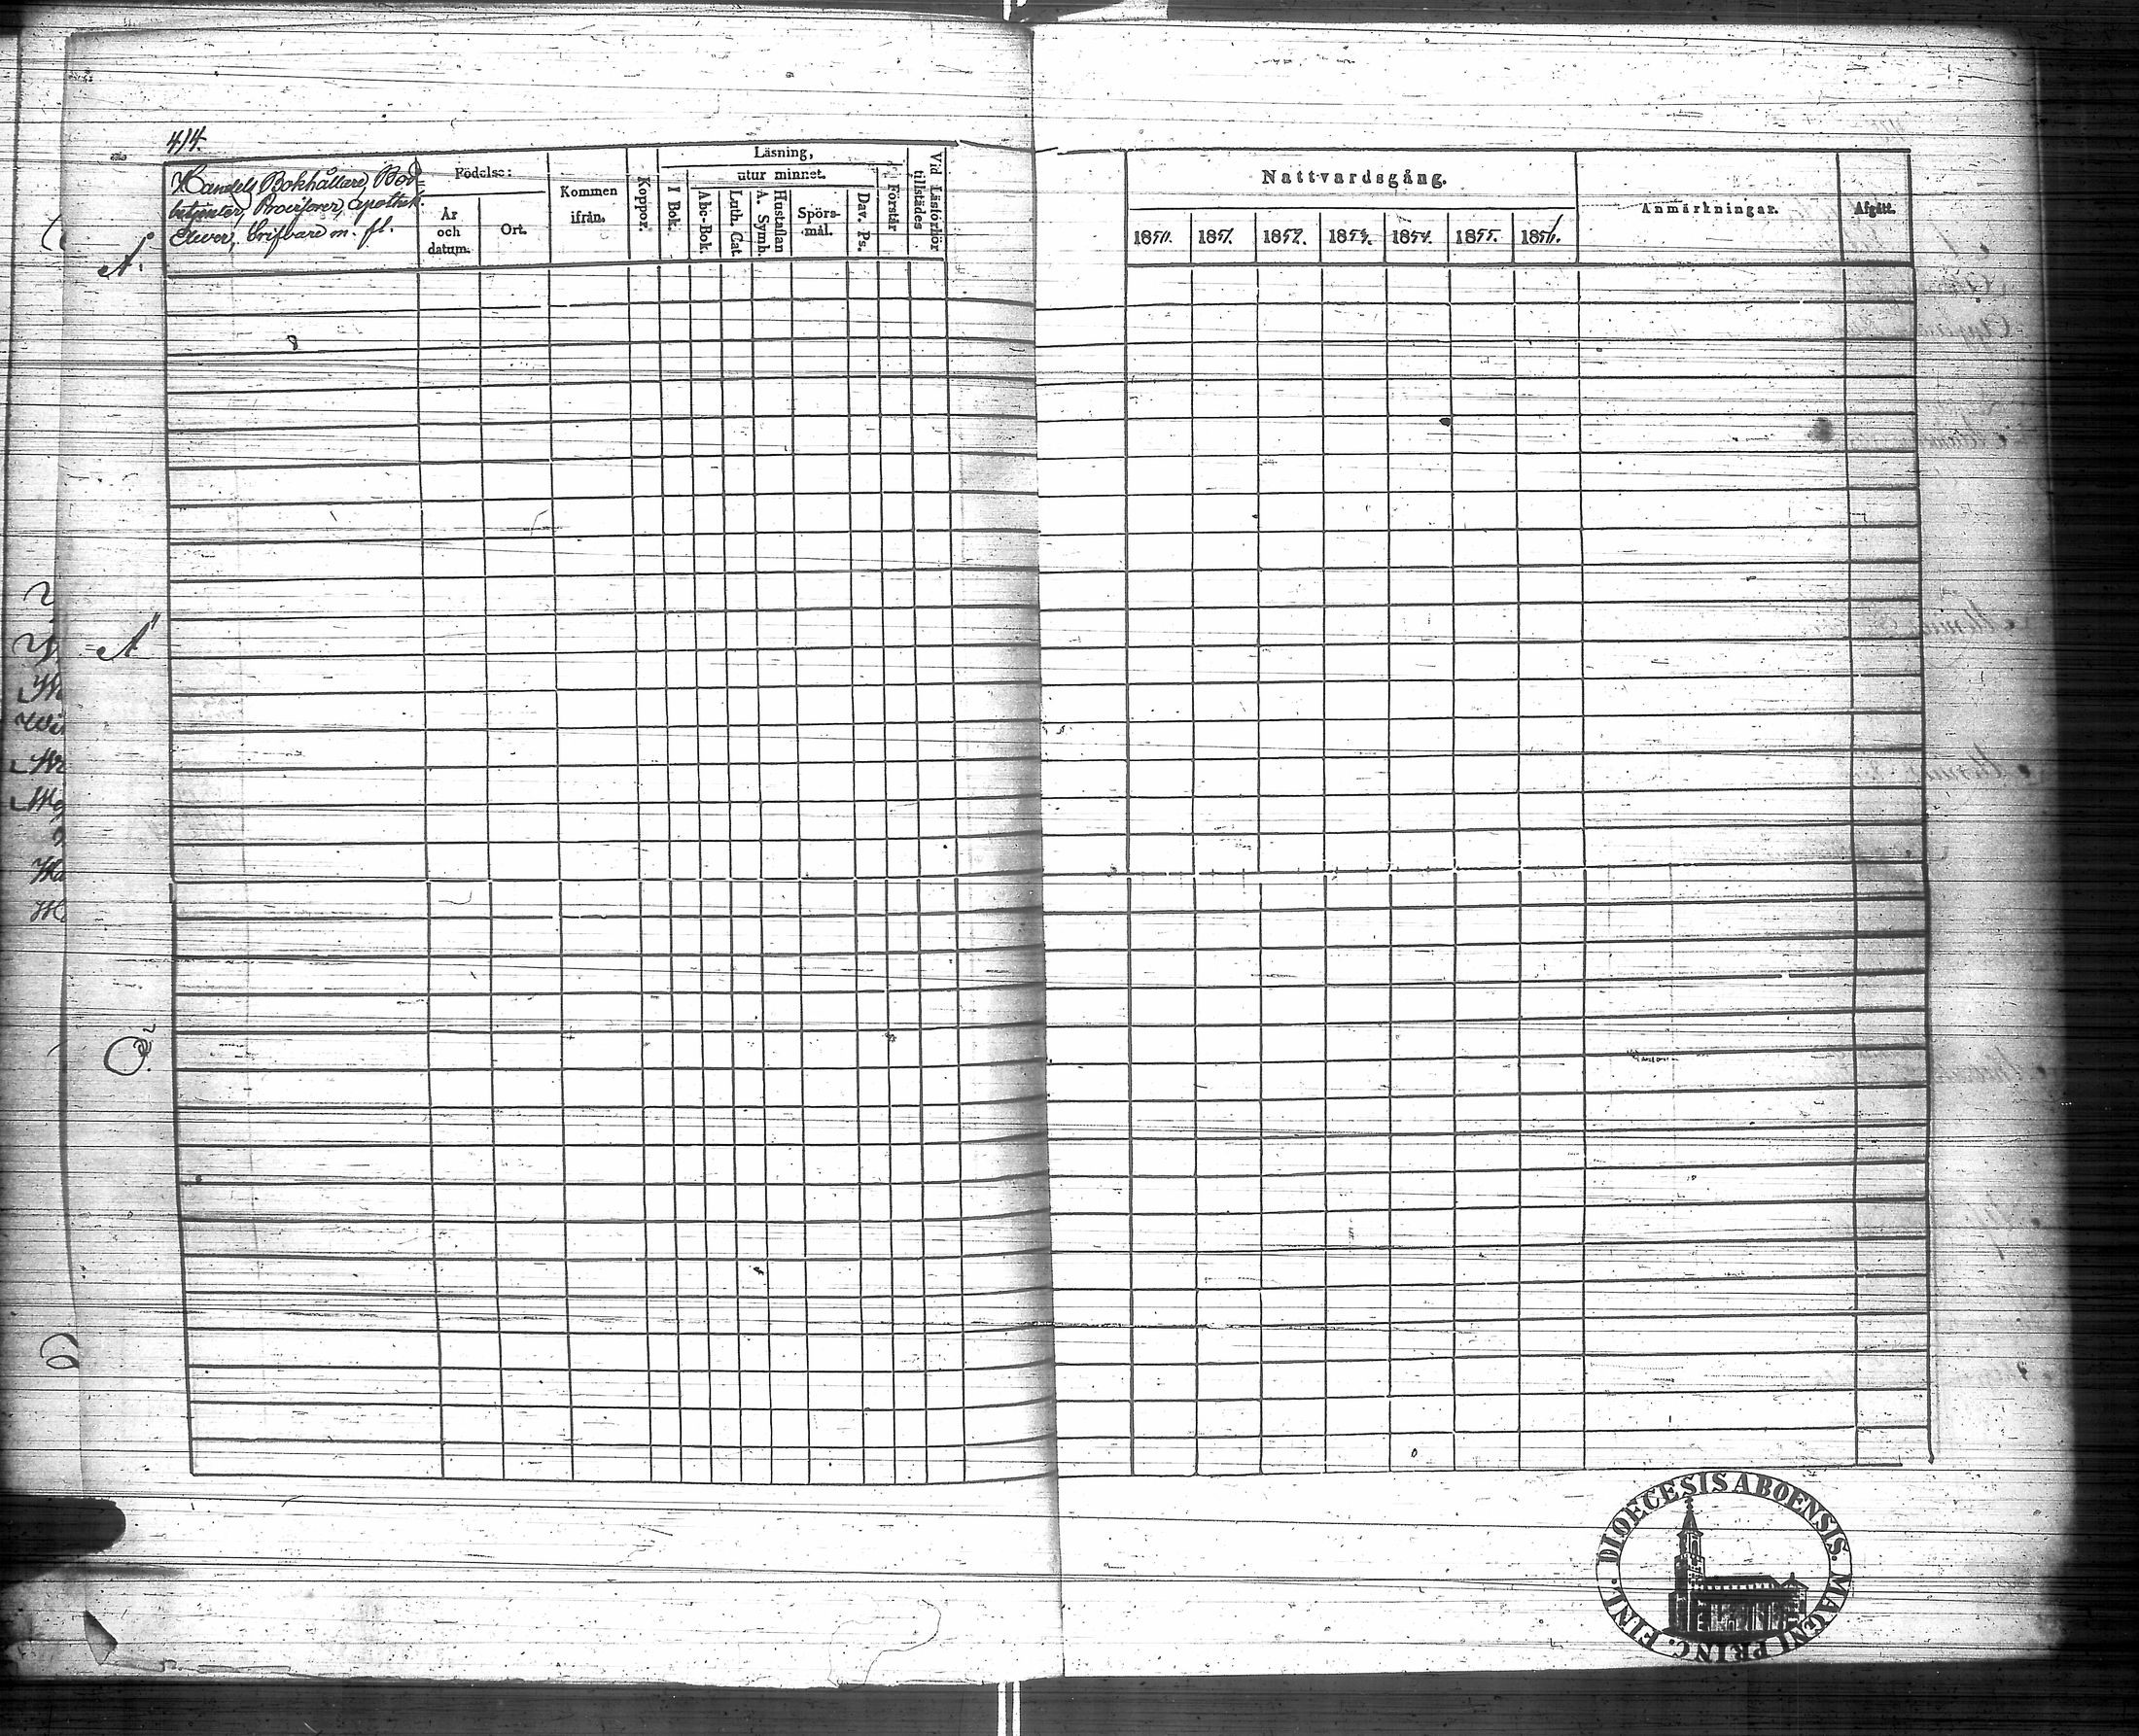 414.
Handels Bokhållare, Bod
betjenter, Provisorer, Apothek.
Elever, Skrifvare m. fl.
Födelse:
År
och
datum.
Ort.
Kommen
ifrån.
Koppor.
Läsning,
utur minnet.
I Bok.
Abc-Bok.
Luth. Cat.
Hustaflan
A. Symb.
Spörs-
mål.
Dav. Ps.
Förstår
Vid Läsförhör
tillstädes
Nattvardsgång.
1850. 1851. 1852. 1853. 1854. 1855. 1856.
Anmärkningar.
Afgått.
DIOECESIS ABOENSIS. MAGNI PRINC. FINL.